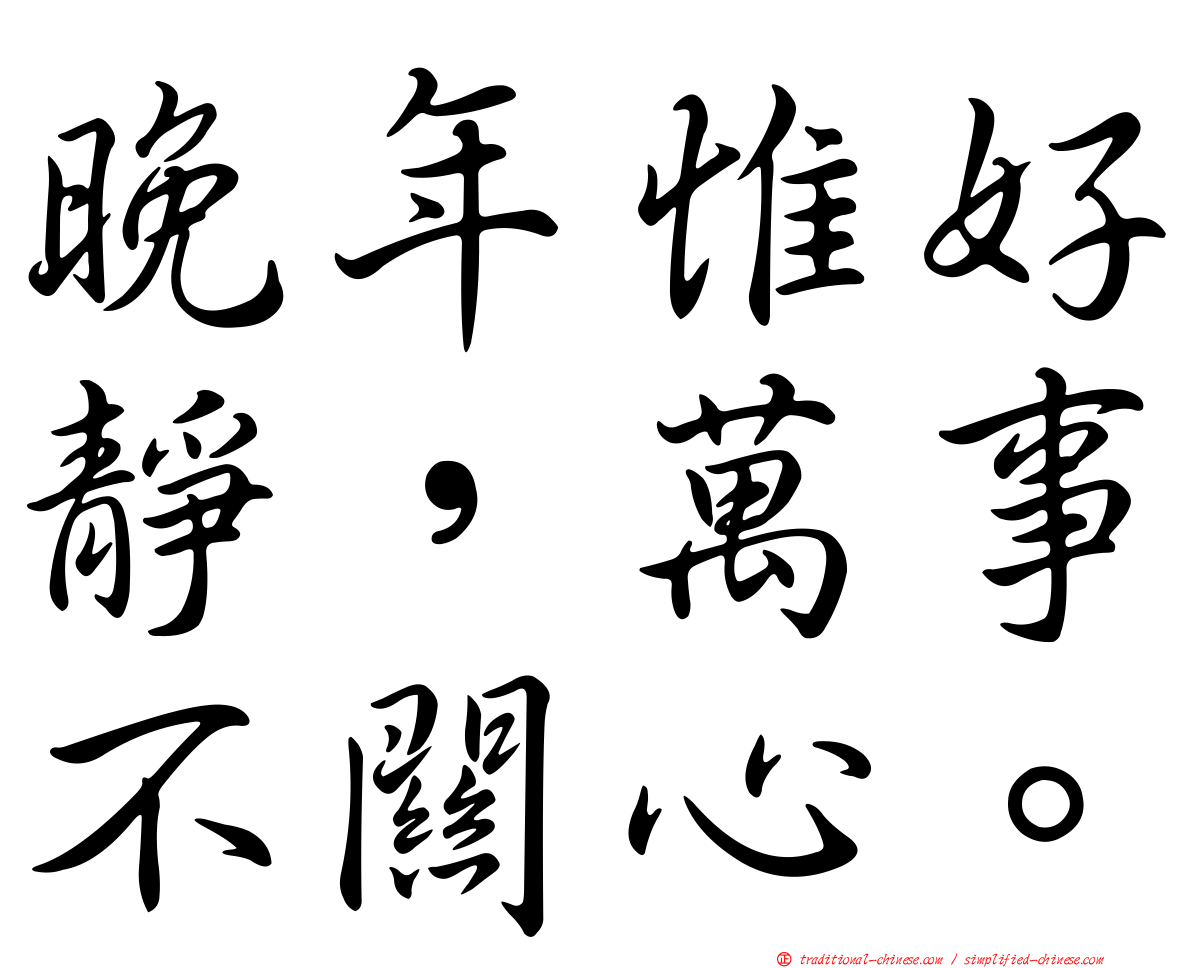 晚年惟好
靜，萬事
不關心。
正 traditional-chinese.com / simplified-chinese.com